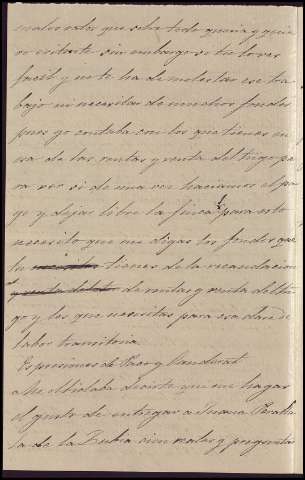 malos ratos que sobre todo queria y quie
ro evitarte sin embargo si tu lo ves
facil y no te ha de molestar ese tra
bajo ni necesitas de muchos fondos
pues yo contaba con los que tienes en
esa de las rentas y venta del trigo pa
ra ver si de una vez haciamos el pa
go y dejar libre la finca para esto
necesito que me digas los fondos que
tu necesitas tienes de la recaudacion
y venta del de rentas y venta del tri
go y los que necesitas para esa clase de
labor transitoria
Esperesiones de Paco y
olvidaba decirte que me hagas
el gusto de entregar a Juana Peralta
de la Rubia cien reales y preguntar